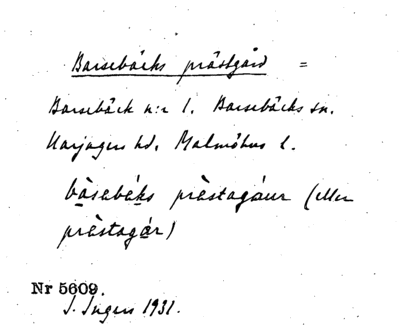 Barsebäcks prästgård =
Barsebäck n:r 1. Barsebäcks sn.
Harjagers hd. Malmöhus l.
bàsabáks prèstagáur (eller
prèstagár)
Nr 5609.
I. Ingers 1931.